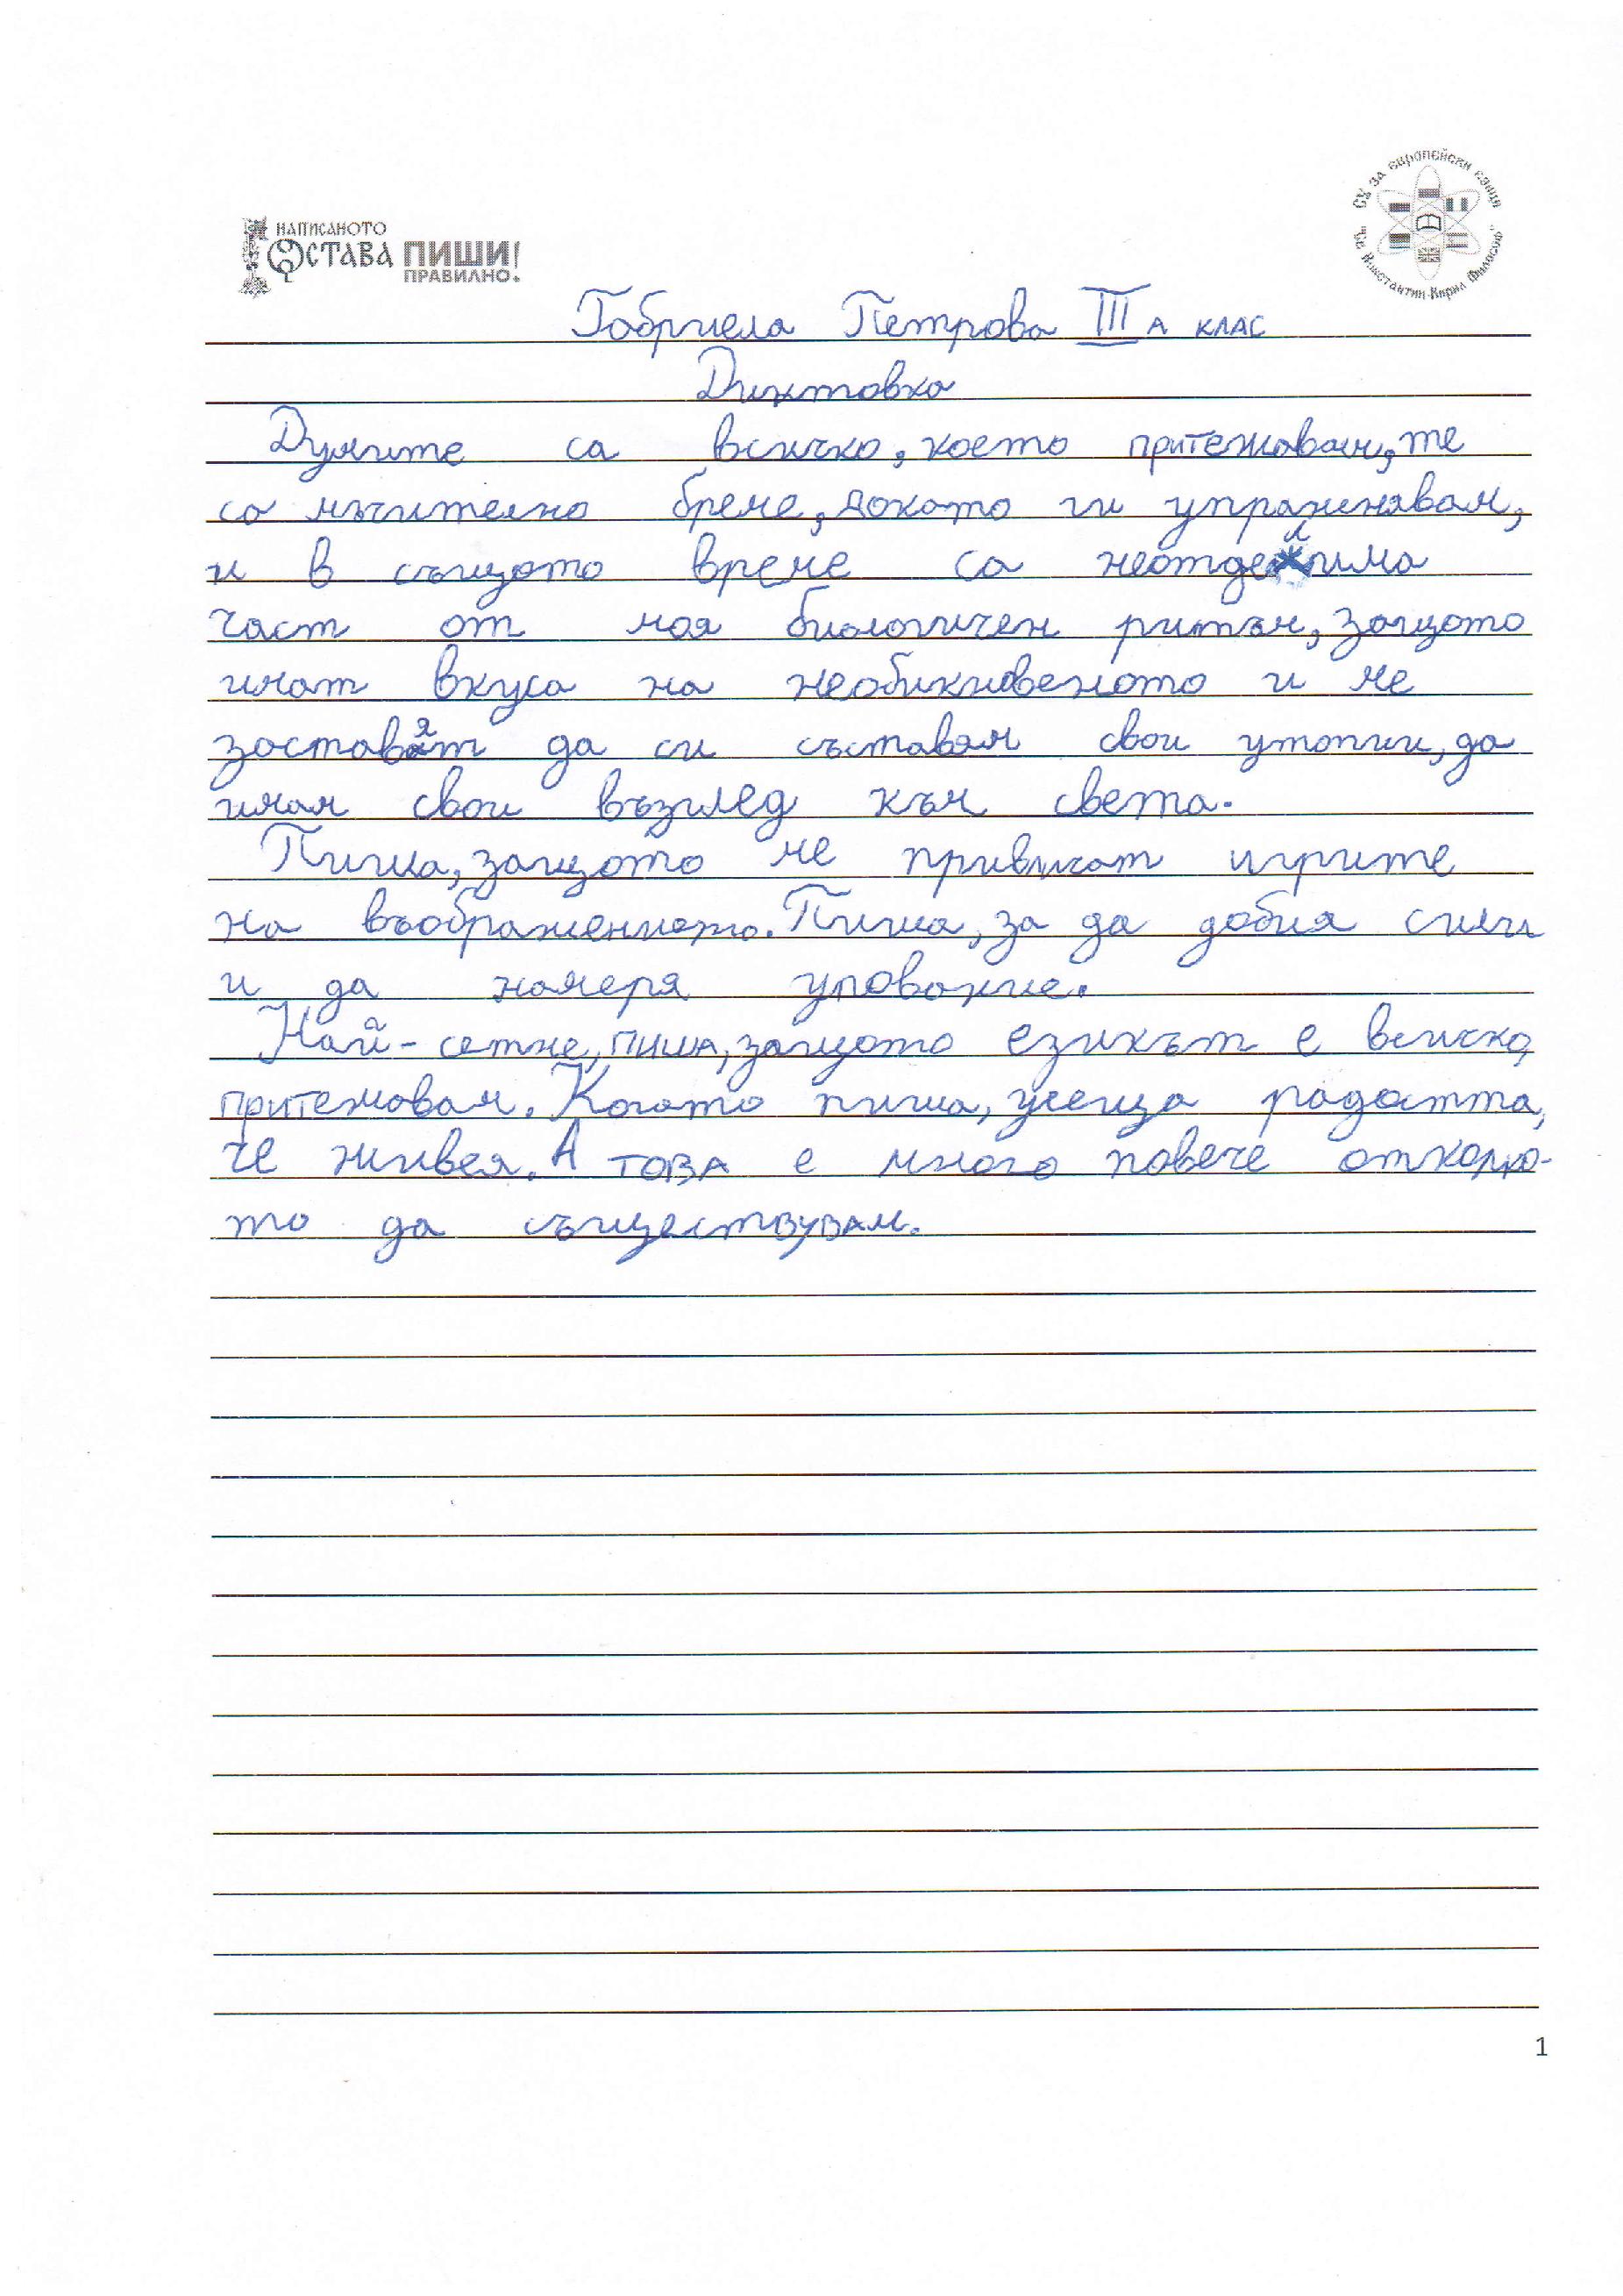 НАПИСАНОТО
ОСТАВА ПИШИ
ПРАВИЛНО!
СУ за европейски езици
"Св. Константин-Кирил Философ"
Габриела Петрова III А КЛАС
Диктовка
Думите са всичко, което притежавам, те
са мъчително бреме, докато ги упражнявам,
и в същото време са неотделима
част от моя биологичен ритъм, защото
имат вкуса на необикновеното и ме
заставят да си съставям свои утопии, да
имам свои възглед към света.
Пиша, защото ме привличат игрите
на въображението. Пиша, за да добия сили
и да намеря упование.
Най-сетне, пиша, защото езикът е всичко,
притежавам. Когато пиша, усеща радостта,
че живея. А това е много повече отколко-
то да съществувам.
1